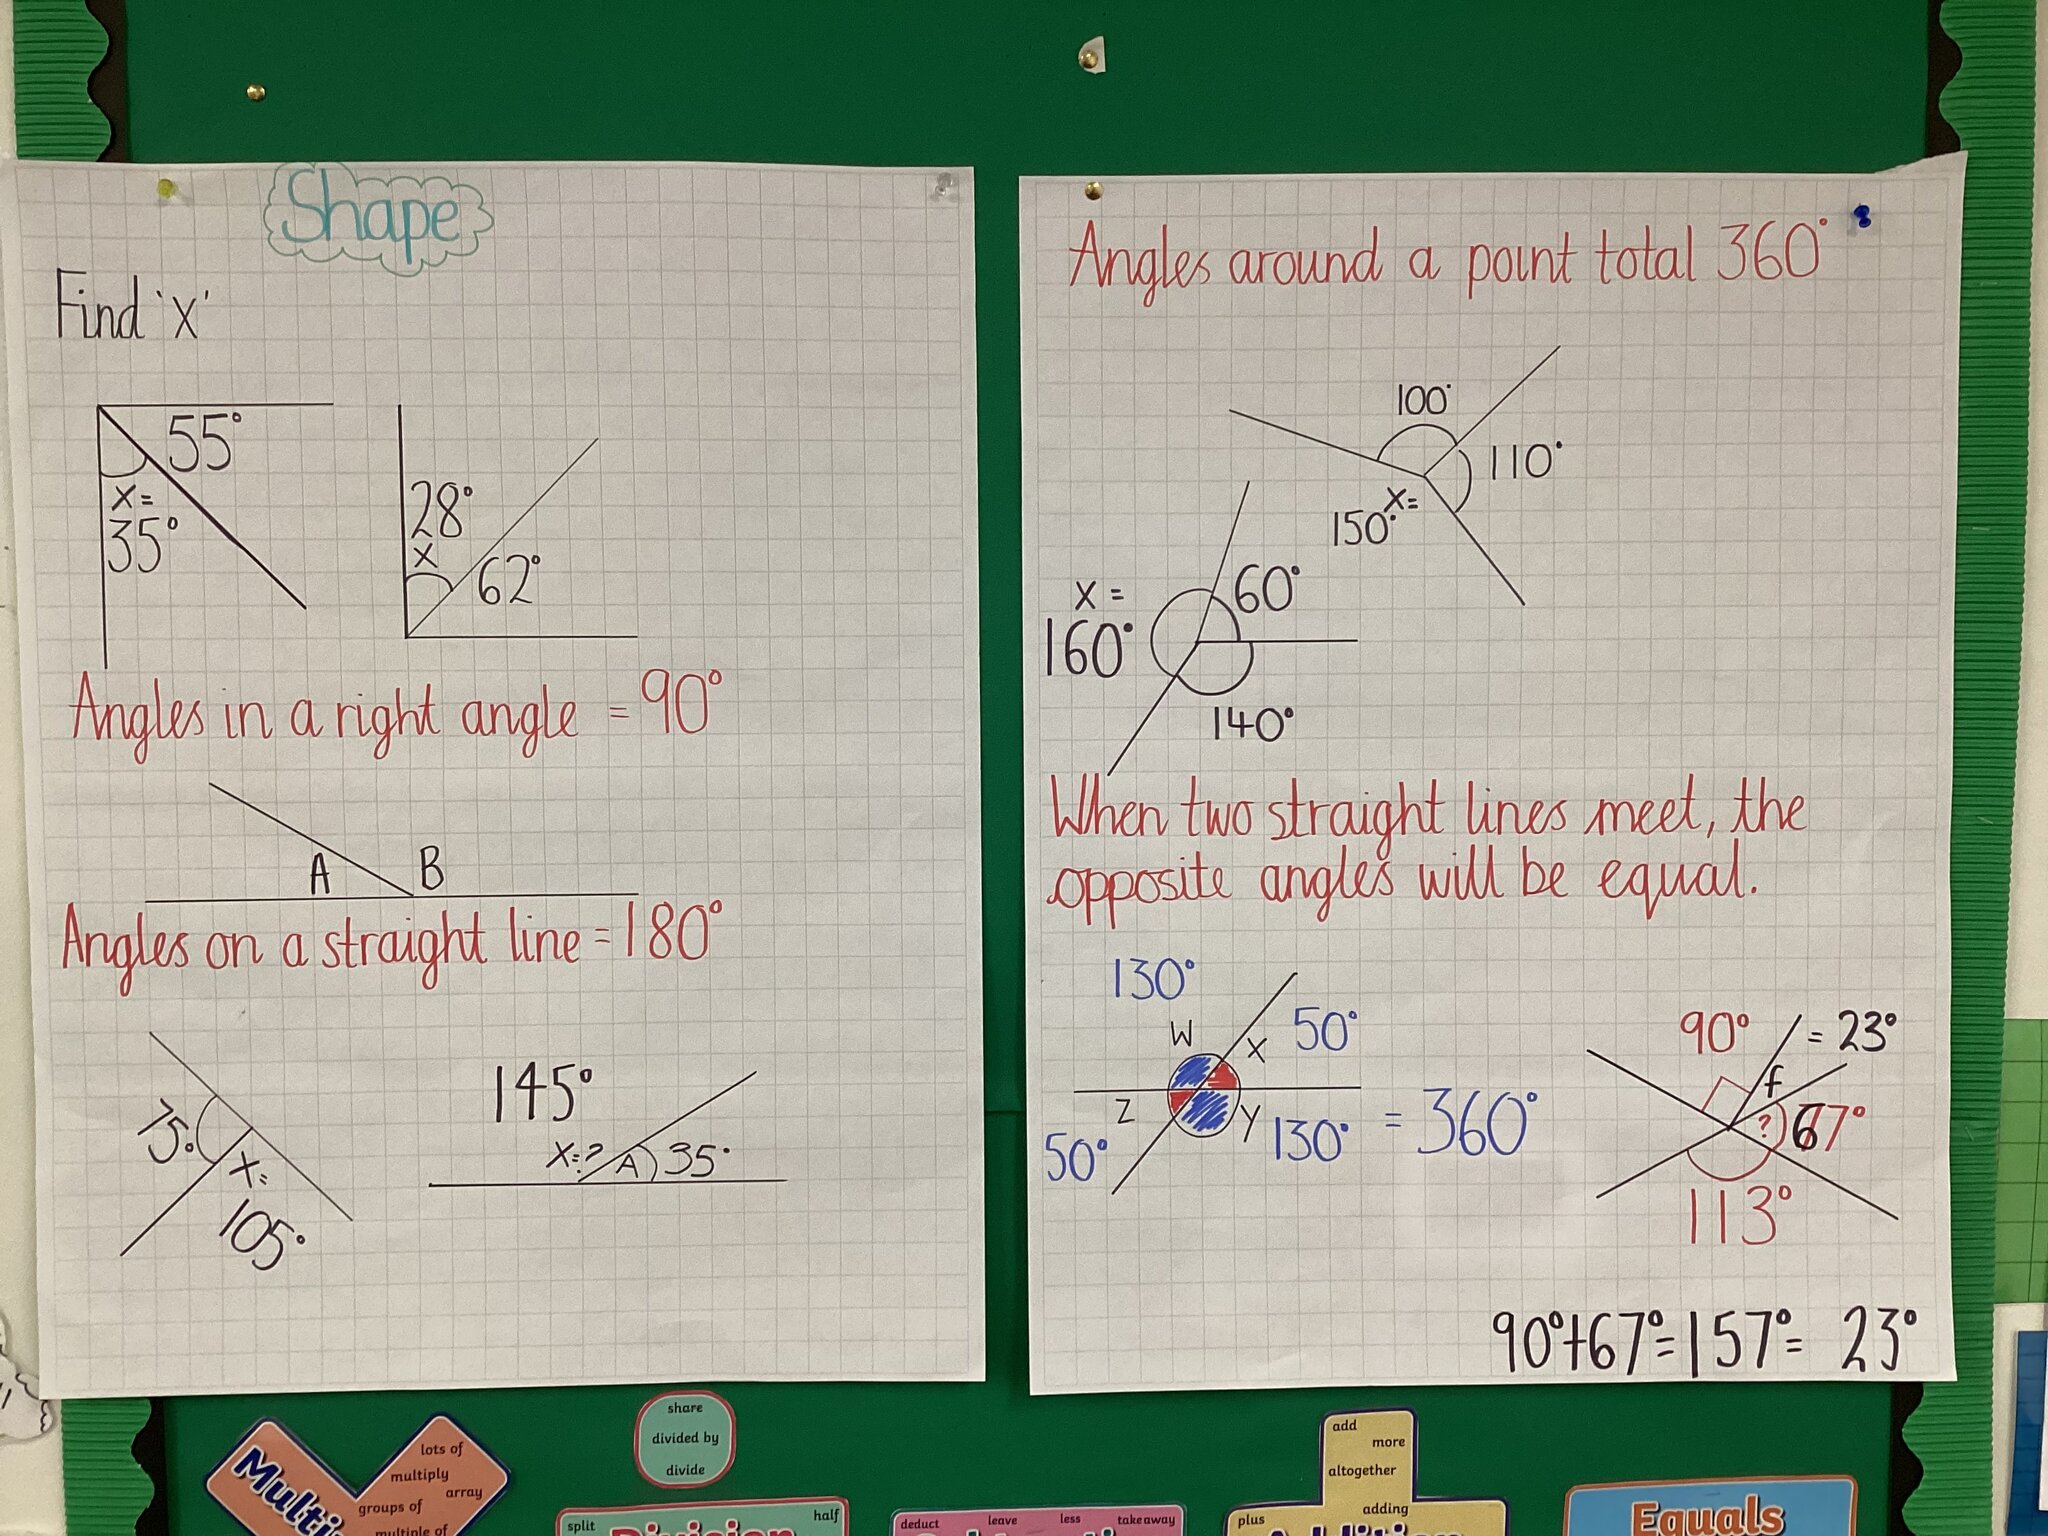 Shape
Find 'x'
55°
x =
35°
28°
x
62°
Angles in a right angle = 90°
A
B
Angles on a straight line = 180°
75°
x =
105°
145°
x = ?
A
35°
Angles around a point total 360°
100°
110°
x =
150°
x =
160°
60°
140°
When two straight lines meet, the
opposite angles will be equal.
130°
W
X
50°
Z
Y
50°
130°
= 360°
90°
= 23°
f
?
67°
113°
90°+67°=157°= 23°
lots of
multiply
array
groups of
multiple of
share
divided by
divide
split
half
Division
deduct
leave
less
takeaway
add
more
altogether
adding
plus
Addition
Equals